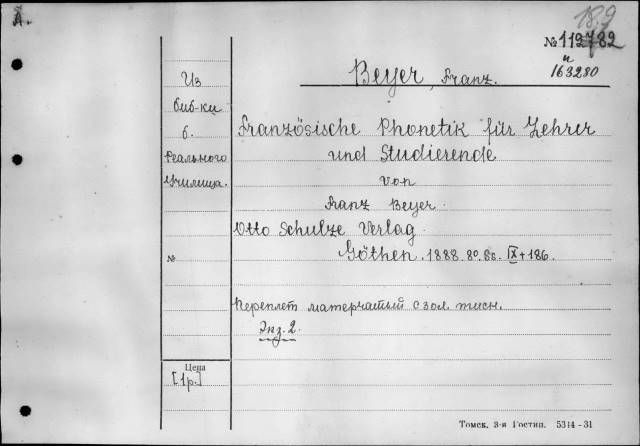 А.
18.9
№112782
и
163280
Beyer, Franz.
Из
биб-ки
б.
Реального
Училища.
Französische Phonetik für Lehrer
und Studierende
von
Franz Beyer
Otto Schulze Verlag
Göthen. 1888. 8º. SS. IX + 186.
№
Переплет матерчатый с зол. тисн.
Экз. 2.
Цена
[1р.]
Томск. 3-я Гостип. 5314-31